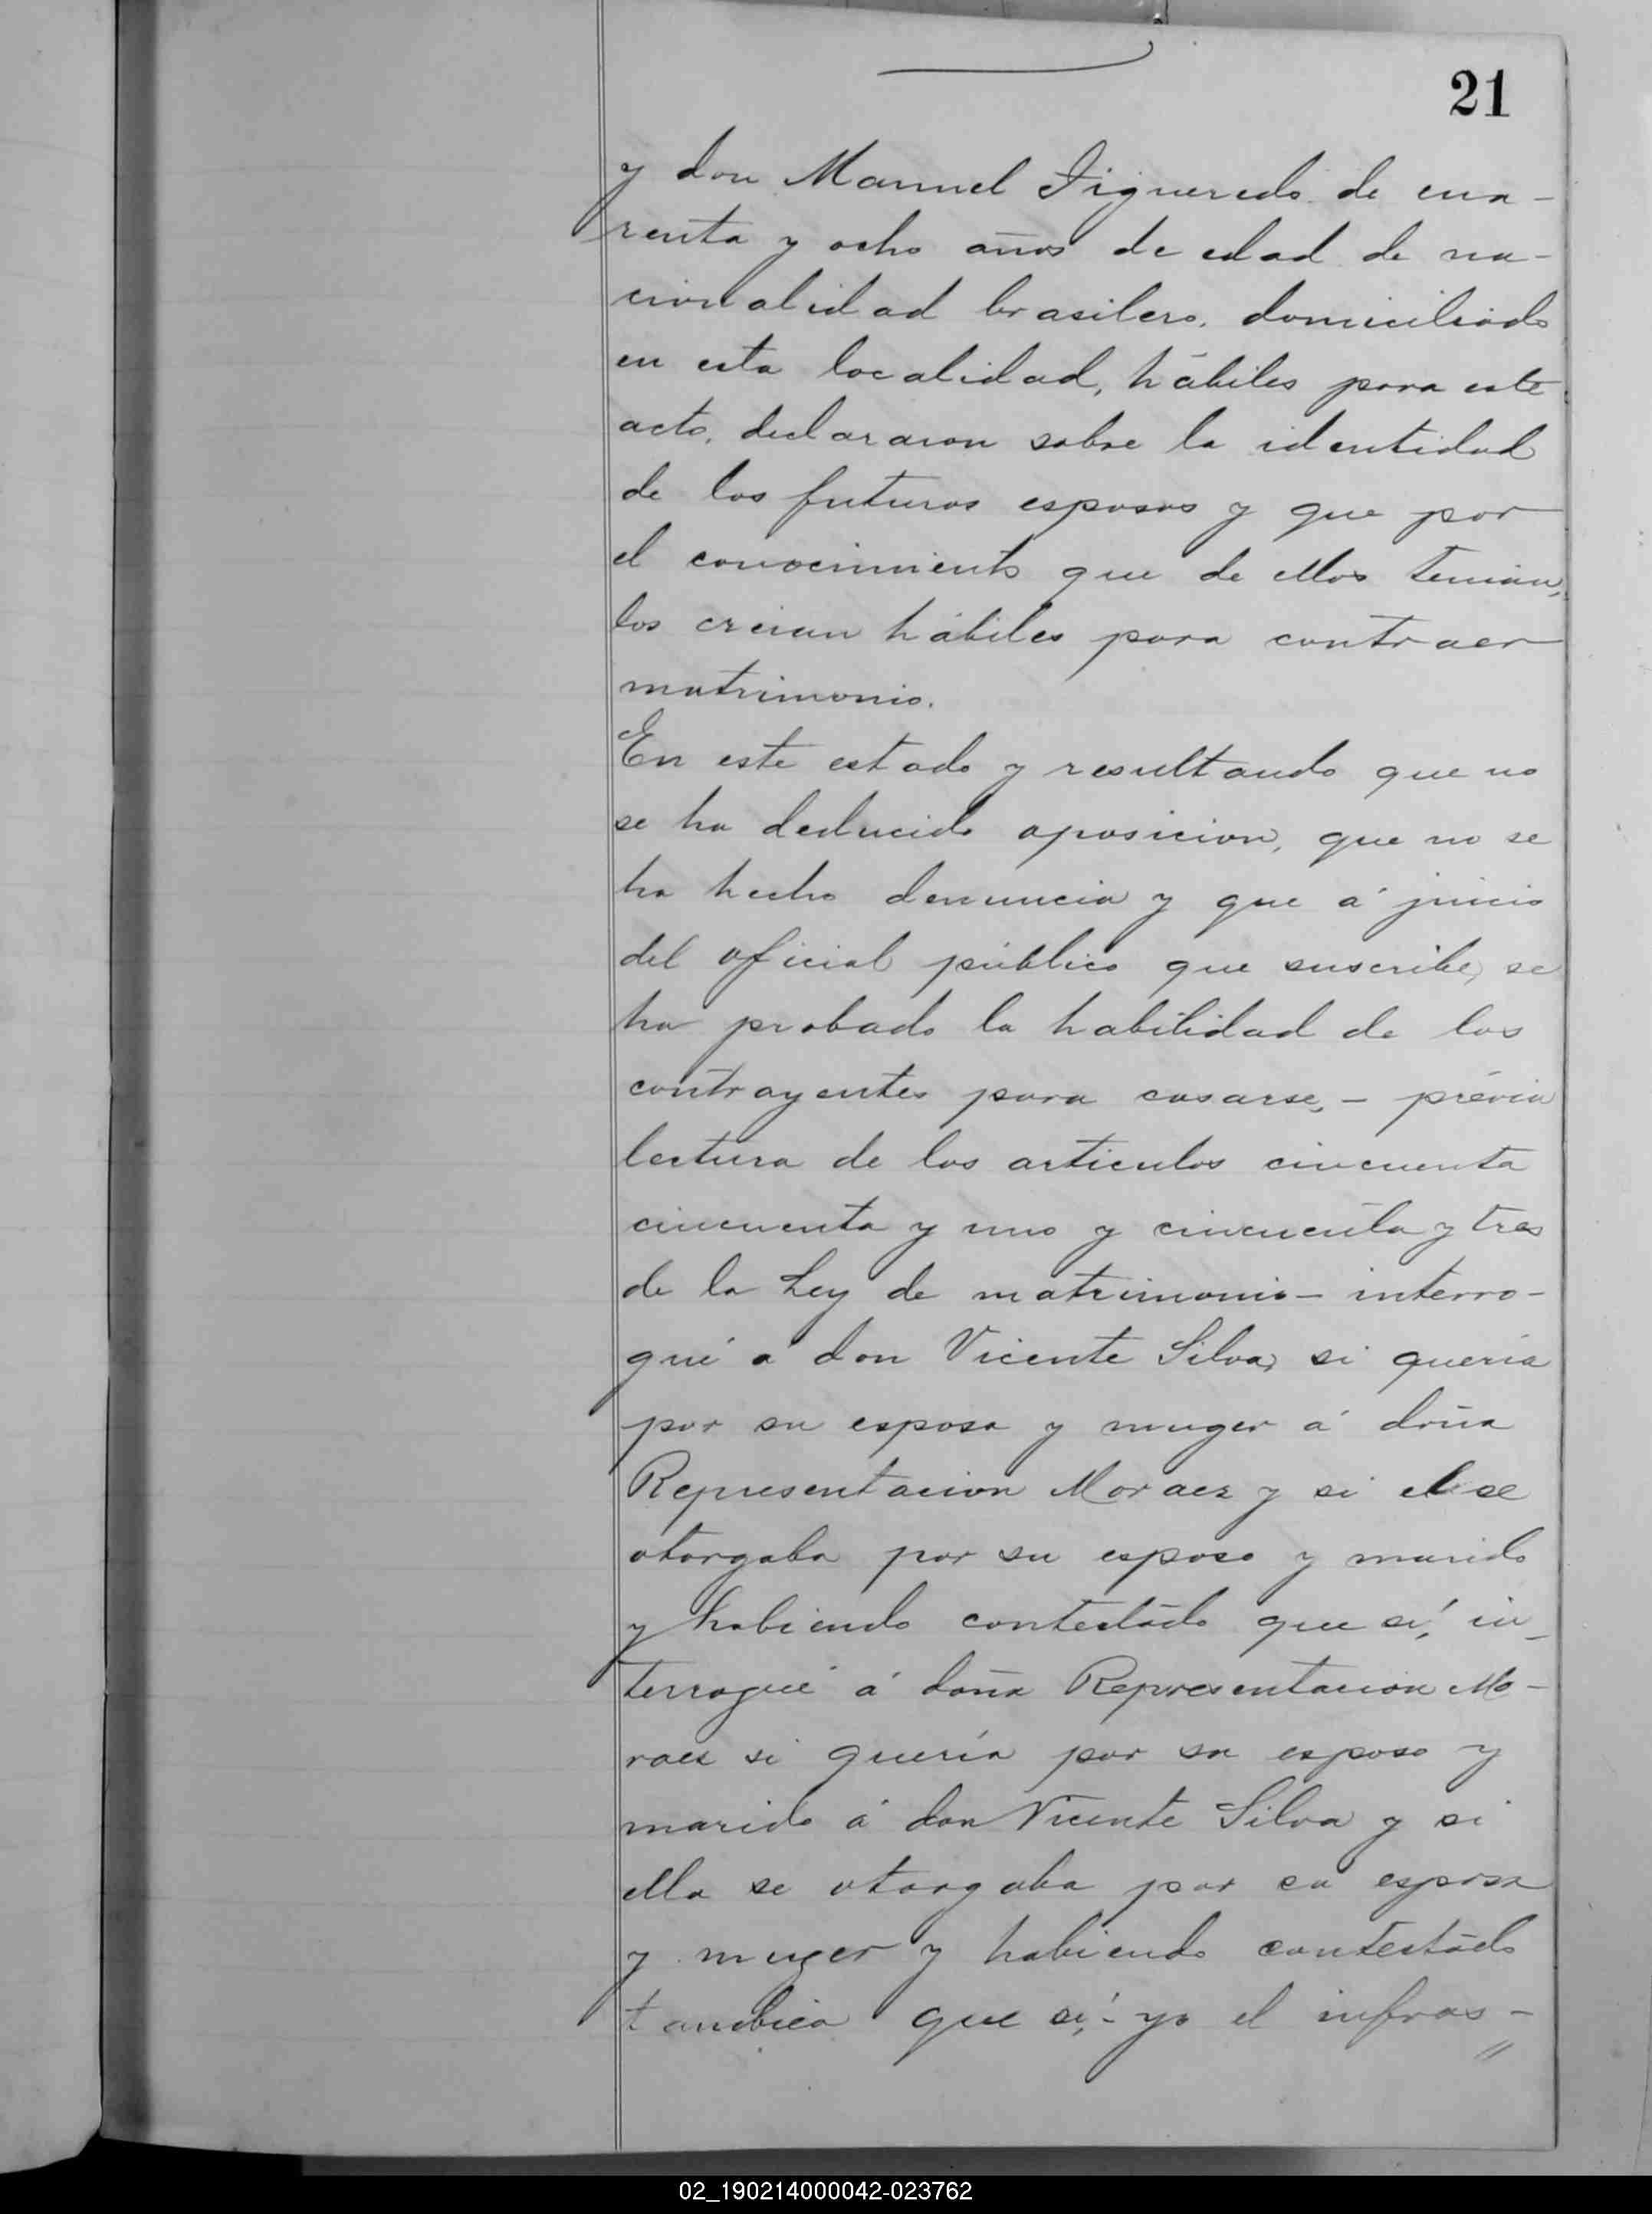 21
y don Manuel Figueredo de cua-
renta y ocho años de edad de na-
cionalidad brasilero, domiciliado
en esta localidad, hábiles para este
acto, declararon sobre la identidad
de los futuros esposos y que por
el conocimiento que de ellos tenian,
los creian hábiles para contraer
matrimonio.
En este estado y resultando que no
se ha deducido oposicion, que no se
ha hecho denuncia y que á juicio
del oficial público que suscribe, se
ha probado la habilidad de los
contrayentes para casarse, - prévia
lectura de los articulos cincuenta
cincuenta y uno y cincuenta y tres
de la Ley de matrimonio - interro-
gué a don Vicente Silva, si queria
por su esposa y muger á doña
Representacion Moraez y si el se
otorgaba por su esposo y marido
y habiendo contestado que sí, in-
terrogué á doña Representacion Mo-
raez si quería por su esposo y
marido á don Vicente Silva y si
ella se otorgaba por su esposa
y muger y habiendo contestado
tambien que sí, - yo el infras-
02_190214000042-023762